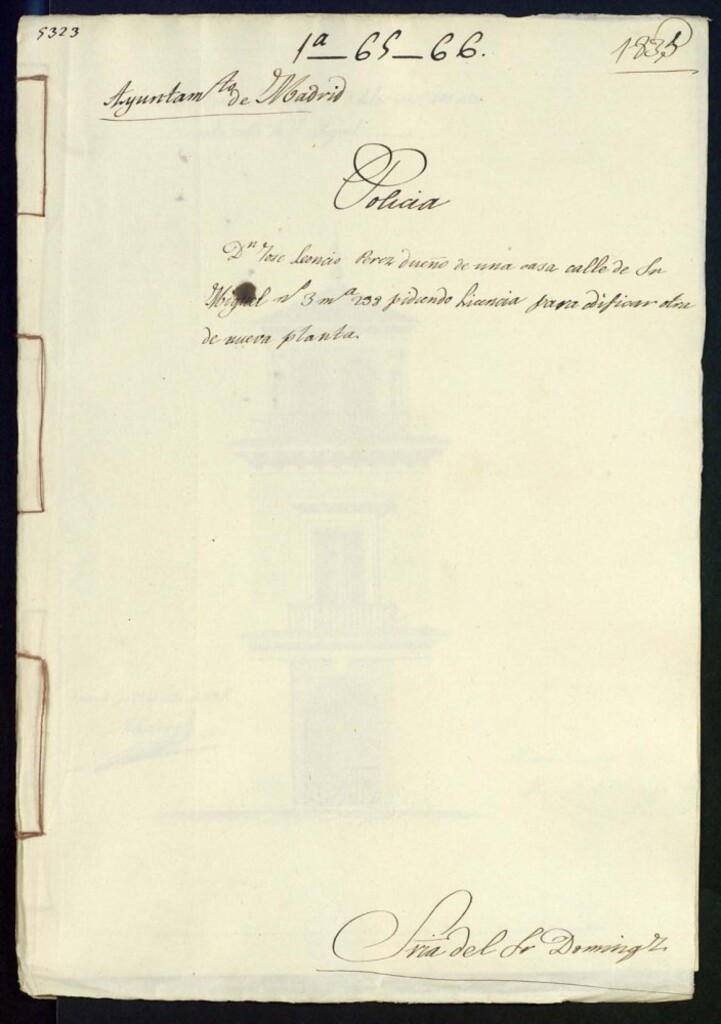 5323
1ª — 65 — 66.
1835
Ayuntam.to de Madrid
Policia
D.n Jose Leoncio Perez dueño de una casa calle de Sn
Miguel nº 3 mª 298 pidiendo licencia para edificar otra
de nueva planta.
Sria del Sr Domingz